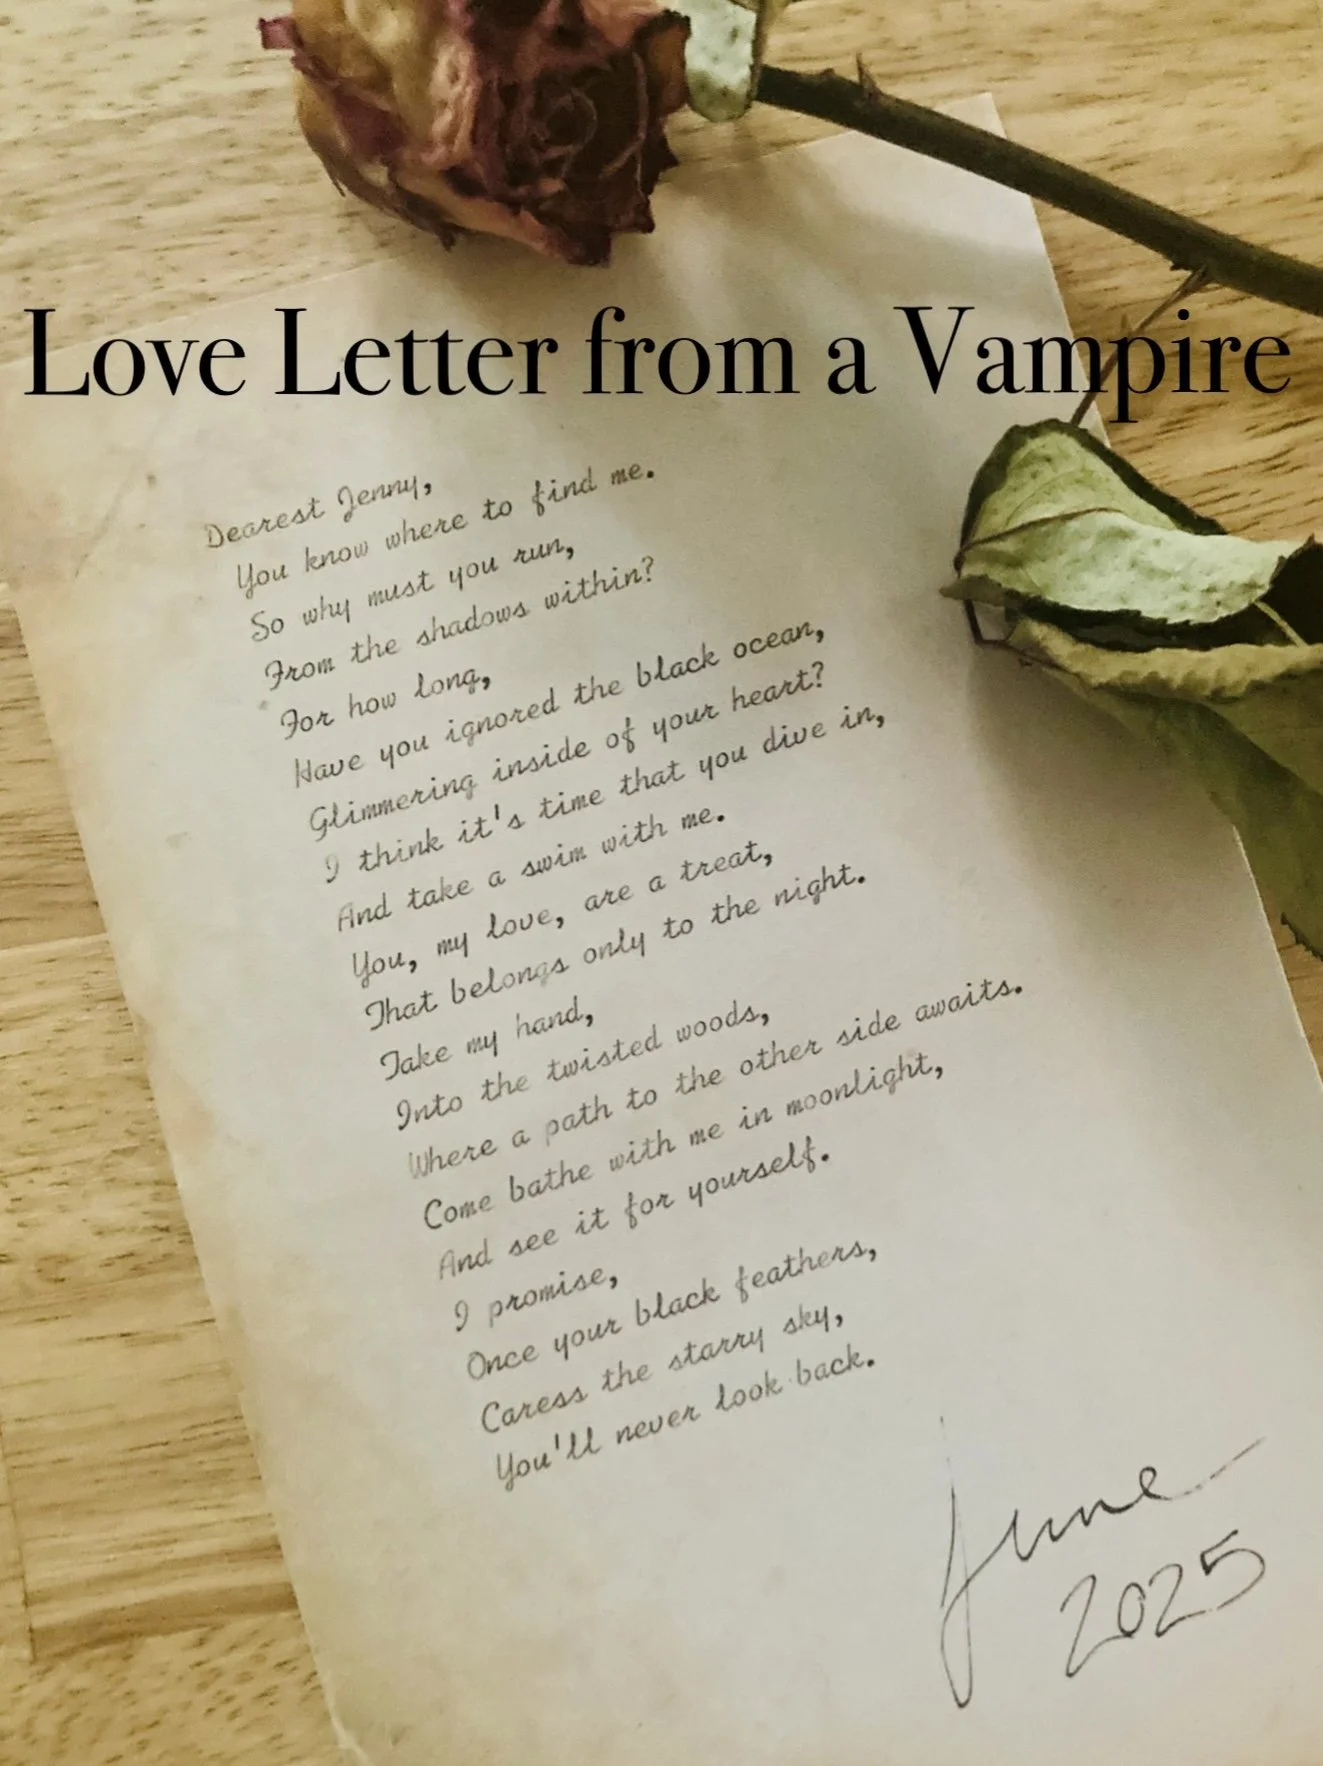 Love Letter from a Vampire
Dearest Jenny,
You know where to find me.
So why must you run,
From the shadows within?
For how long,
Have you ignored the black ocean,
Glimmering inside of your heart?
I think it's time that you dive in,
And take a swim with me.
You, my love, are a treat,
That belongs only to the night.
Take my hand,
Into the twisted woods,
Where a path to the other side awaits.
Come bathe with me in moonlight,
And see it for yourself.
I promise,
Once your black feathers,
Caress the starry sky,
You'll never look back.
June
2025